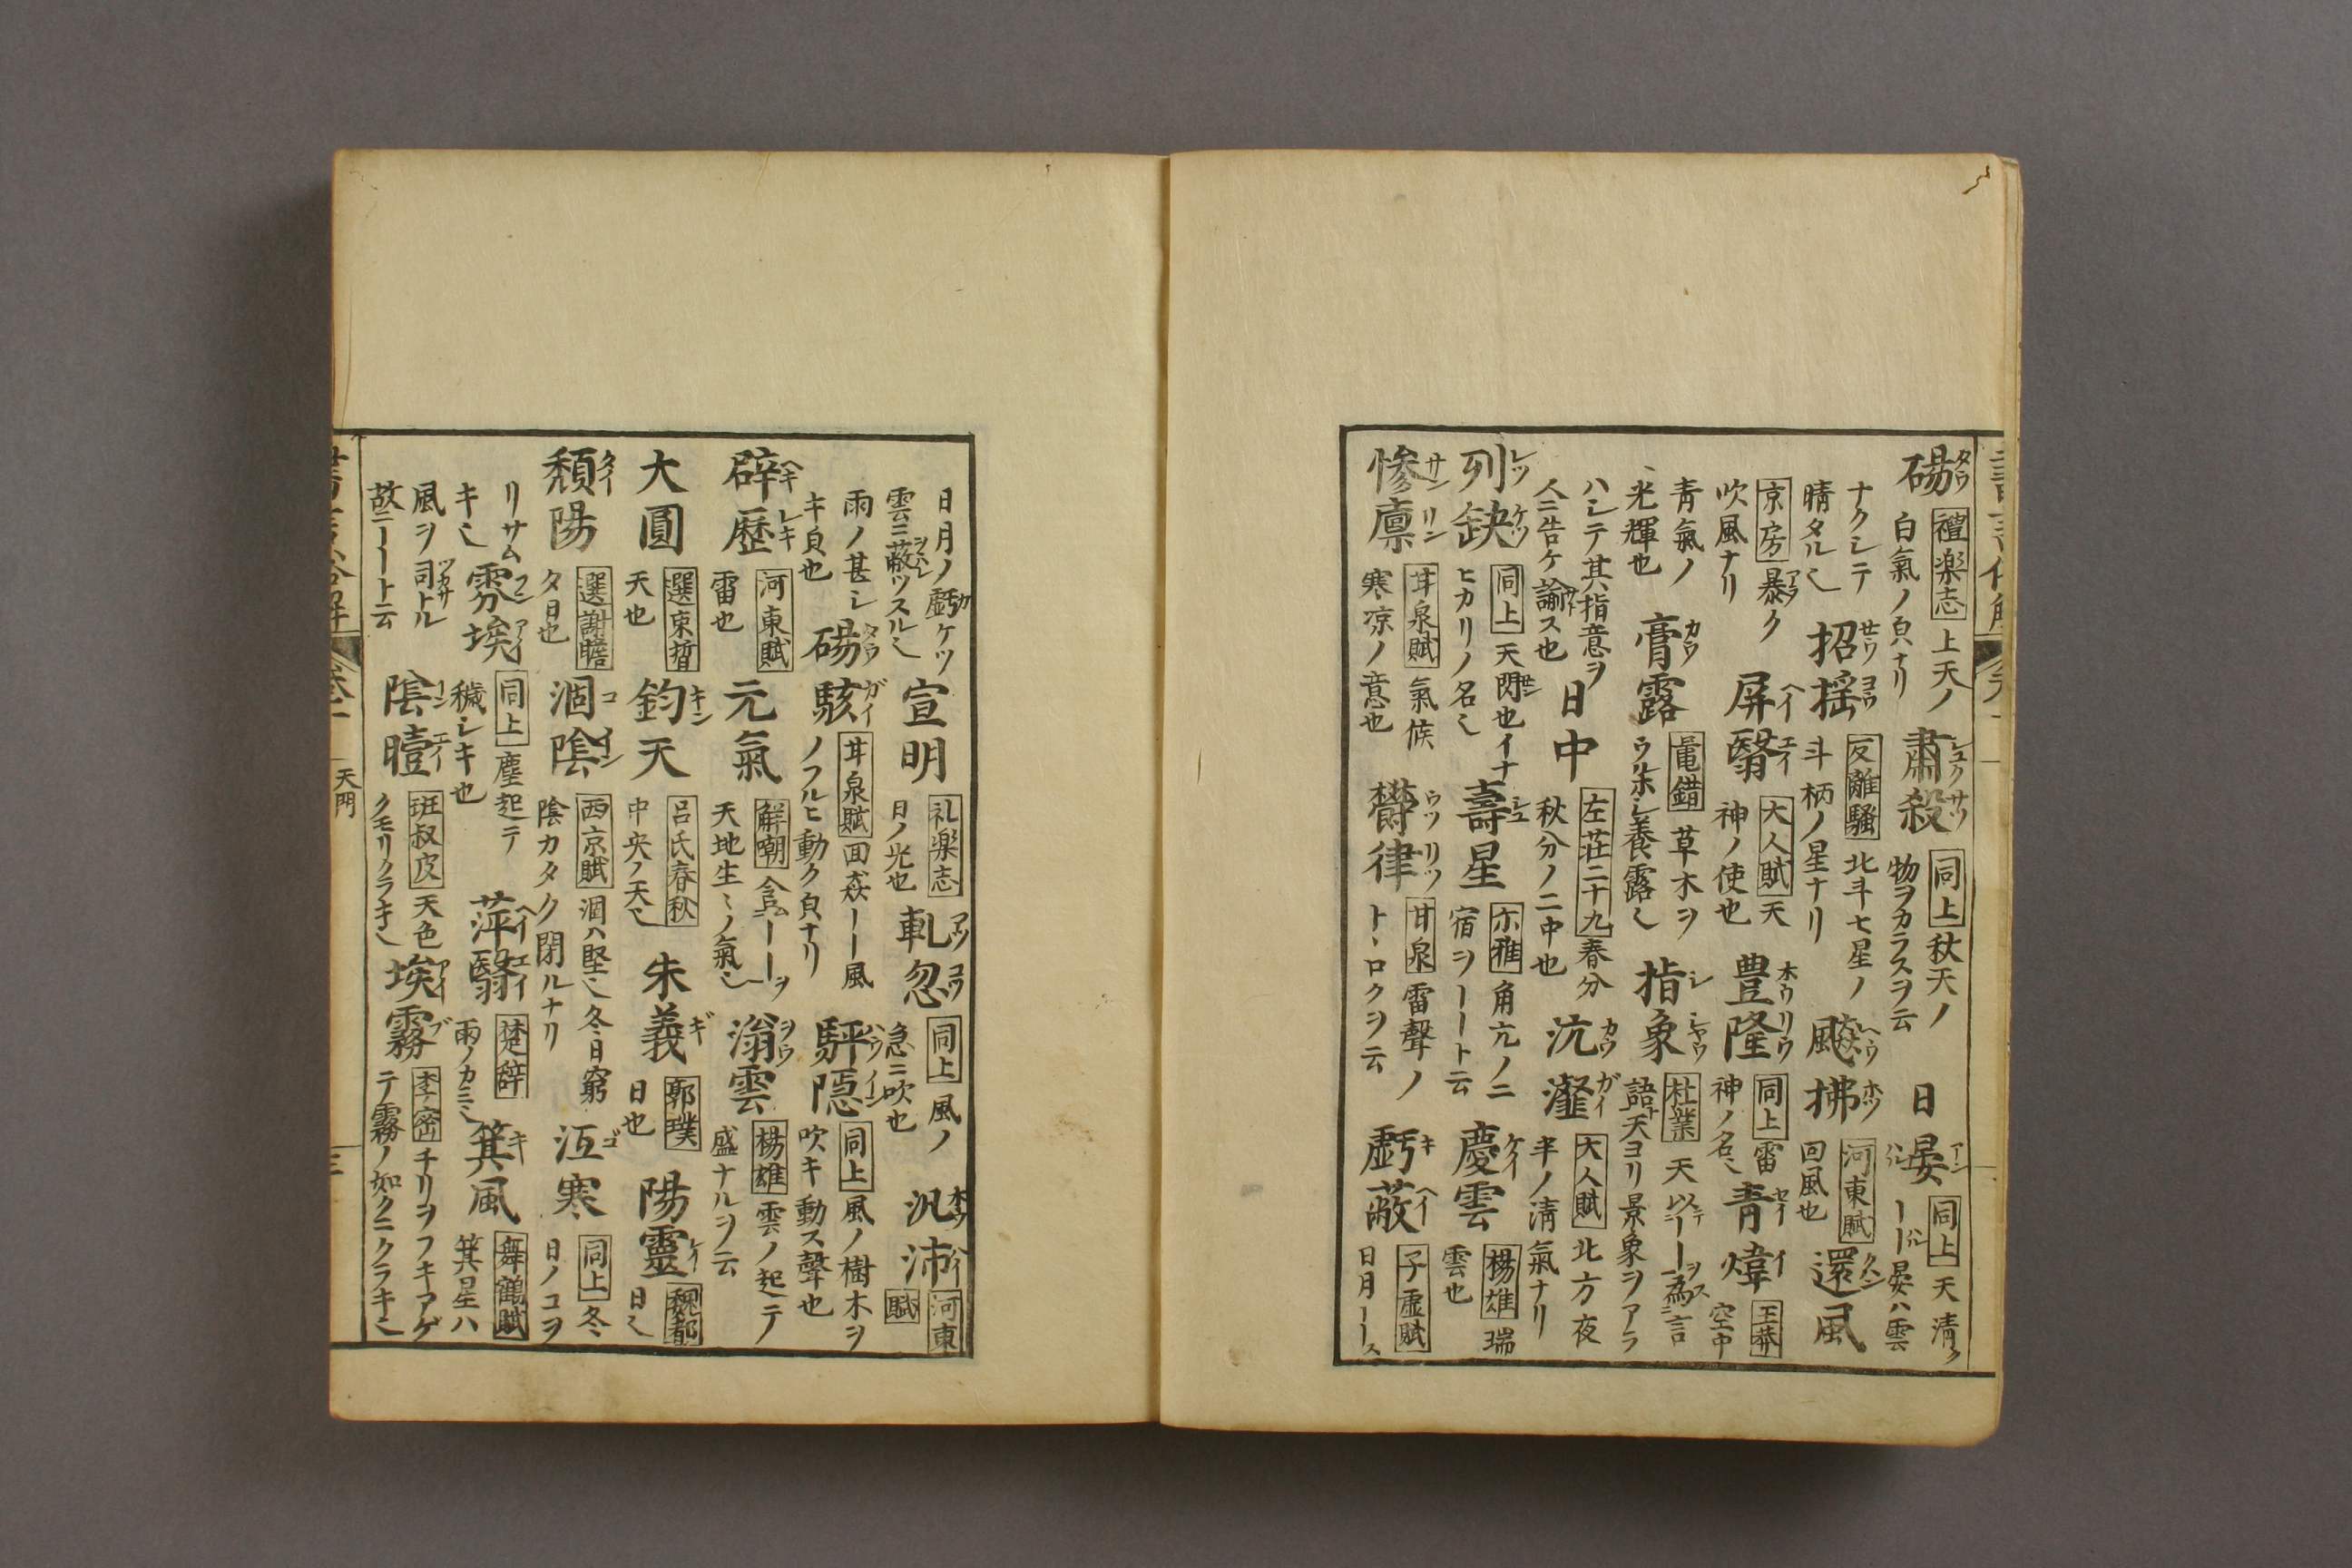 碭 禮楽志 上天ノ白氣ノ㒵ナリ 肅殺 同上 秋天ノ物ヲカラスヲ云 日晏 同上 天清ク
ナクシテ晴タル〻 招揺 反離騷 北斗七星ノ斗柄ノ星ナリ 飇拂 河東賦 回風也 還風
京房 暴ク吹風ナリ 屏翳 大人賦 天神ノ使也 豊隆 同上 雷神ノ名〻 青煒 王莽 空中
青氣ノ光輝也 膏露 鼂錯 草木ヲウルホシ養露〻 指象 杜業 天以ーー為言語天ヨリ景象ヲアラ
ハシテ其指意ヲ人ニ告ケ諭ス也 日中 左荘二十九 春分秋分ノ二中也 沆瀣 大人賦 北方夜半ノ淸氣ナリ
列缺 同上 天閃也イナヒカリノ名〻 壽星 尓雅 角亢ノ二宿ヲーート云 慶雲 楊雄 瑞雲也
惨廪 甘泉賦 氣候寒凉ノ意也 欝律 甘泉 雷聲ノトヽロクヲ云 虧蔽 子虚賦 日月ーース
日月ノ虧ケツ雲ニ蔽ツスル〻 宣明 礼楽志 日ノ光也 軋忽 同上 風ノ急ニ吹也 汎沛 河東賦
雨ノ甚シキ㒵也 碭駭 甘泉賦 回猋ーー風ノフルヒ動ク㒵ナリ 駍隠 同上 風ノ樹木ヲ吹キ動ス聲也
辟歷 河東賦 雷也 元氣 解嘲 含ーーヲ天地生〻ノ氣〻 滃雲 楊雄 雲ノ起テ盛ナルヲ云
大圓 選束晳 天也 鈞天 呂氏春秋 中央ノ天〻 朱義 郭璞 日也 陽靈 魏都 日〻
頽陽 選謝瞻 夕日也 涸陰 西京賦 涸ハ堅〻冬日窮陰カタク閉ルナリ 冱寒 同上 冬日ノコヲ
リサムキ〻 雰埃 同上 塵起テ穢シキ也 萍翳 楚辞 雨ノカミ〻 箕風 舞鶴賦 箕星ハ
風ヲ司トル故ニーート云 陰曀 班叔皮 天色クモリクラキ〻 埃霧 李密 チリヲフキアゲテ霧ノ如クニクラキ〻
天門
三